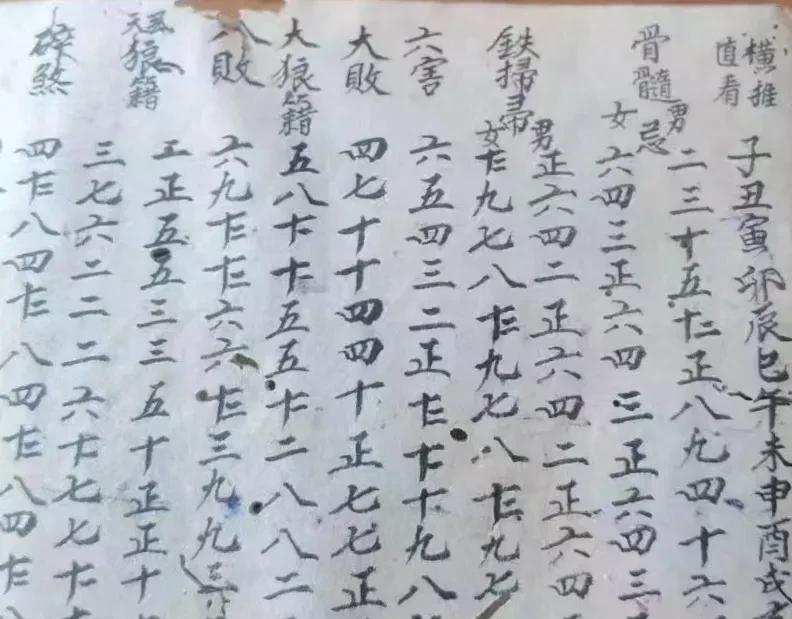 橫推
直看
子丑寅卯辰巳午未申酉戌
骨髓
男
女
忌
二三十五十二正八九四十六
六四三正六四三正六四三
鉄掃帚
男
正六四二正六四二正六四
女
十二九七八十二九七八十二九七
六害
六五四三二正十二十一十九八
大敗
四七十十四四十正七七正
大狼籍
五八十一十一五五十一二八八二
八敗
六九十二十二六六十二三九九三
狼籍
正五五三三五十正正十
三七六二二二六十一七七十一
碎煞
四十二八四十二八四十二八四十二八